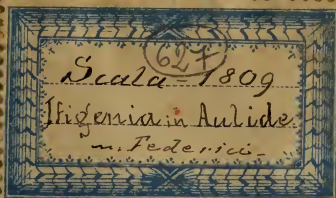 627
Scala 1809
Ifigenia in Aulide
m. Federici